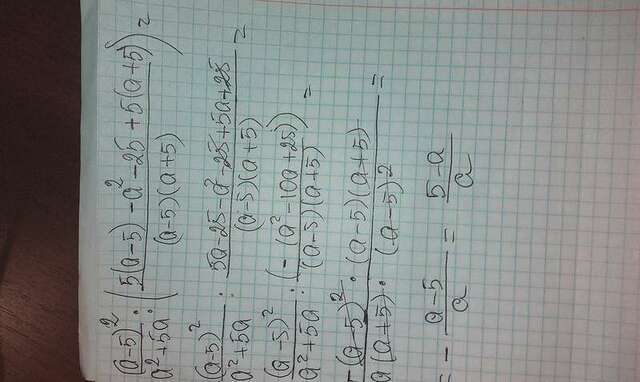 (a-5)²/(a²+5a) : ((5(a-5)-a²-25+5(a+5))/((a-5)(a+5))) =
(a-5)²/(a²+5a) : (5a-25-a²-25+5a+25)/((a-5)(a+5)) =
(a-5)²/(a²+5a) : (-(a²-10a+25))/((a-5)(a+5)) =
-(a-5)²·(a-5)(a+5)/(a(a+5)·(a-5)²) =
= -(a-5)/a = (5-a)/a